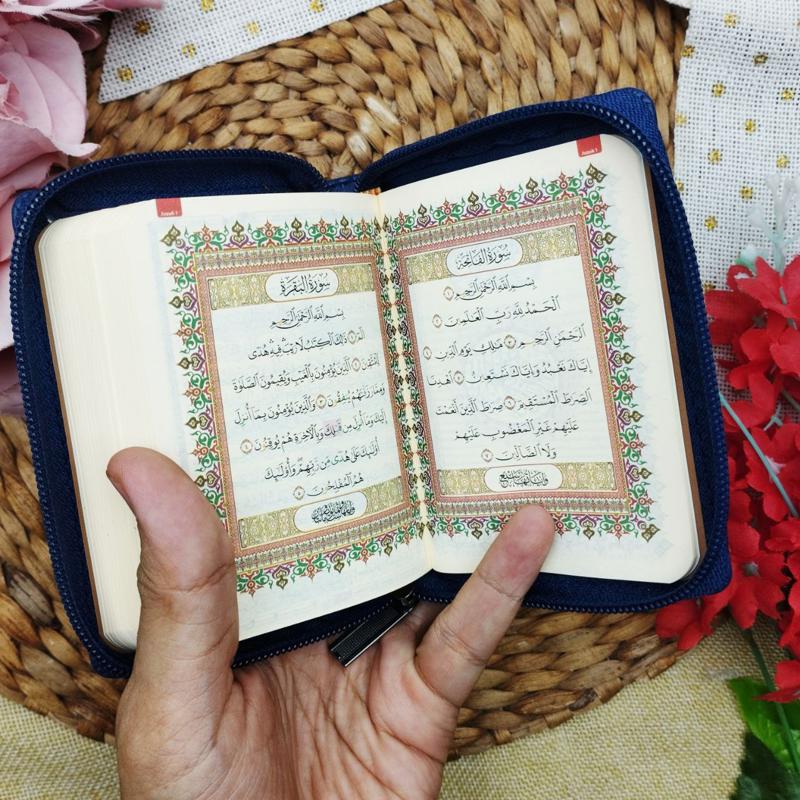 Juzuk 1
سورة الفاتحة
بِسْمِ اللَّهِ الرَّحْمَٰنِ الرَّحِيمِ ١
الْحَمْدُ لِلَّهِ رَبِّ الْعَٰلَمِينَ ٢
الرَّحْمَٰنِ الرَّحِيمِ ٣ مَٰلِكِ يَوْمِ الدِّينِ ٤
إِيَّاكَ نَعْبُدُ وَإِيَّاكَ نَسْتَعِينُ ٥ اهْدِنَا
الصِّرَٰطَ الْمُسْتَقِيمَ ٦ صِرَٰطَ الَّذِينَ أَنْعَمْتَ
عَلَيْهِمْ غَيْرِ الْمَغْضُوبِ عَلَيْهِمْ
وَلَا الضَّالِّينَ ٧
Juzuk 1
سورة البقرة
بِسْمِ اللَّهِ الرَّحْمَٰنِ الرَّحِيمِ
الم ١ ذَٰلِكَ الْكِتَٰبُ لَا رَيْبَ فِيهِ هُدًى
لِّلْمُتَّقِينَ ٢ الَّذِينَ يُؤْمِنُونَ بِالْغَيْبِ وَيُقِيمُونَ الصَّلَوٰةَ
وَمِمَّا رَزَقْنَٰهُمْ يُنفِقُونَ ٣ وَالَّذِينَ يُؤْمِنُونَ بِمَا أُنزِلَ
إِلَيْكَ وَمَا أُنزِلَ مِن قَبْلِكَ وَبِالْآخِرَةِ هُمْ يُوقِنُونَ ٤
أُولَٰئِكَ عَلَىٰ هُدًى مِّن رَّبِّهِمْ وَأُولَٰئِكَ
هُمُ الْمُفْلِحُونَ ٥